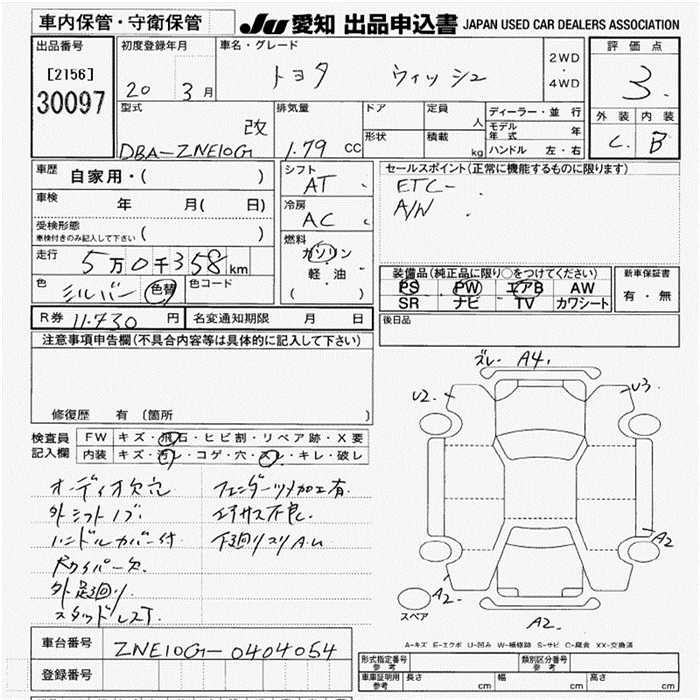 車内保管・守衛保管
JU 愛知 出品申込書 JAPAN USED CAR DEALERS ASSOCIATION
出品番号
[2156]
30097
初度登録年月
20 3月
車名・グレード
トヨタ ウィッシュ
2WD
・
4WD
評価点
3.
外装 内装
C. B
型式
改
DBA-ZNE10G
排気量
1.79 CC
ドア
形状
定員 人
積載 kg
ディーラー・並行
モデル年式 年
ハンドル 左・右
車歴
自家用・( )
車検 年 月( 日)
受検形態
車検付きのみ記入して下さい ( )
走行 5万0千358km
色 シルバー 色替 色コード
シフト
AT
冷房
AC
燃料
ガソリン
軽油
( )
セールスポイント(正常に機能するものに限ります)
ETC
A/W
装備品(純正品に限り○をつけてください)
PS PW エアB AW
SR ナビ TV カワシート
新車保証書
有・無
R券 11.730円 名変通知期限 月 日
後日品
注意事項申告欄(不具合内容等は具体的に記入して下さい)
修復歴 有 〔箇所 〕
検査員
記入欄
FW キズ・飛石・ヒビ割・リペア跡・X要
内装 キズ・汚レ・コゲ・穴・スレ・キレ・破レ
オーディオ欠品
外シフトノブ
ハンドルカバー付
ドワイパー欠
外足廻り
スタッドレス
フェンダーツメ加工有
エアサス不良.
下廻りスリ
ズレ A4
U2. U3.
A2
A2
A2.
スペア
A-キズ E-エクボ U-凹み W-補修跡 S-サビ C-腐食 XX-交換済
車台番号 ZNE10G-0404054
登録番号
形式指定番号
参考
類別区分番号
参考
車庫証明用
参考
長さ cm 幅 cm 高さ cm